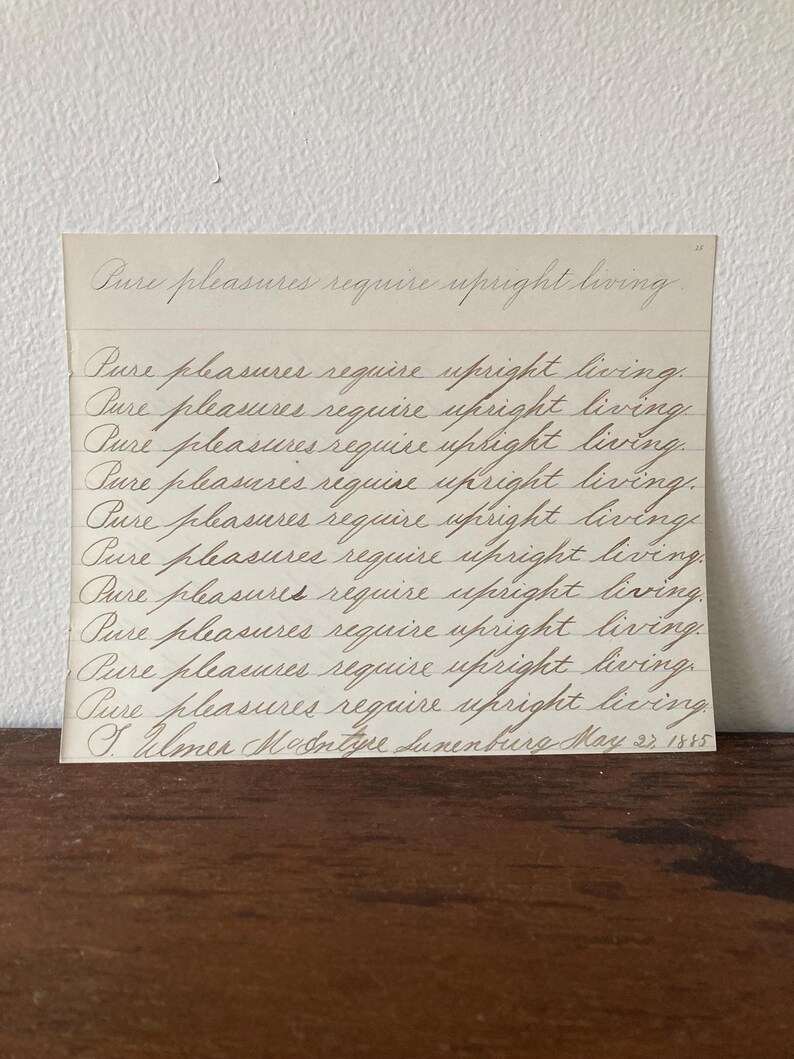 25
Pure pleasures require upright living.
Pure pleasures require upright living.
Pure pleasures require upright living.
Pure pleasures require upright living.
Pure pleasures require upright living.
Pure pleasures require upright living.
Pure pleasures require upright living.
Pure pleasures require upright living.
Pure pleasures require upright living.
Pure pleasures require upright living.
Pure pleasures require upright living.
Ulmer McIntyre Lunenburg May 27, 1885